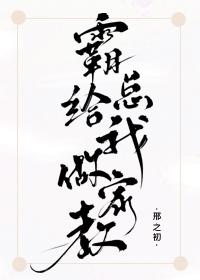 霸总给我做家教
·邢之初·